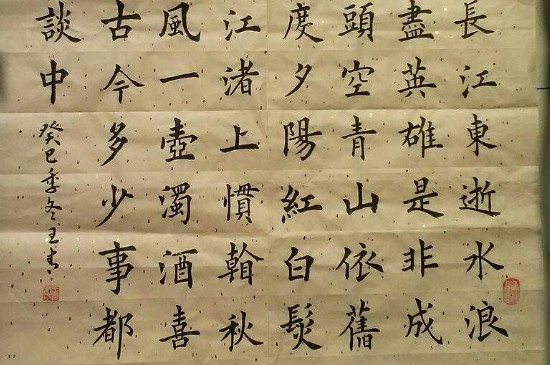 長江東逝水浪
盡英雄是非成
頭空青山依舊
度夕陽紅白髮
江渚上慣翰秋
風一壺濁酒喜
古今多少事都
談中
癸巳季冬王